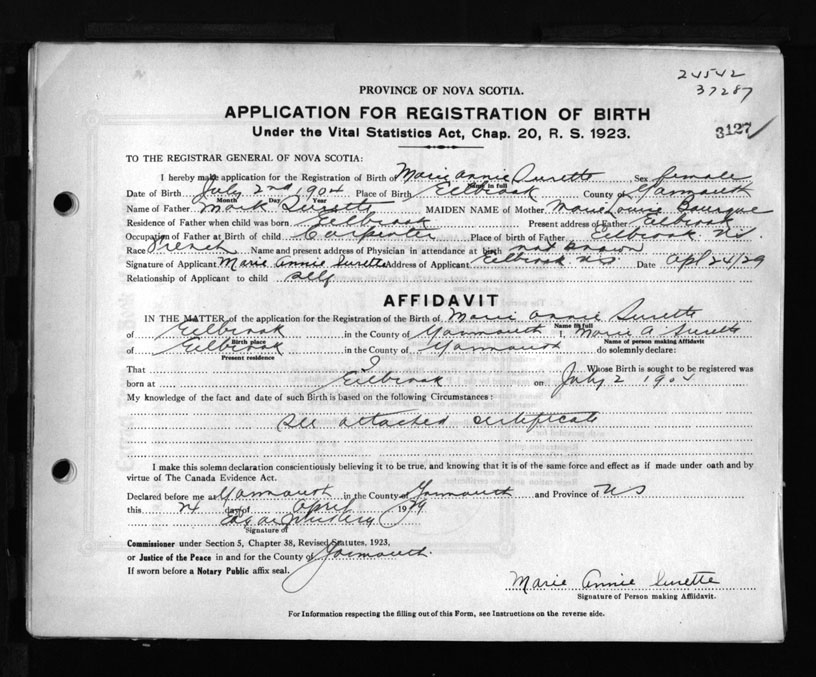 24542
37287
PROVINCE OF NOVA SCOTIA.
APPLICATION FOR REGISTRATION OF BIRTH
Under the Vital Statistics Act, Chap. 20, R. S. 1923.
3127
TO THE REGISTRAR GENERAL OF NOVA SCOTIA:
I hereby make application for the Registration of Birth of Marie Annie Surette Sex female
Name in full
Date of Birth July 2nd 1904 Place of Birth Eelbrook County of Yarmouth
Month Day Year
Name of Father Mark Surette MAIDEN NAME of Mother Marie Louise Bourque
Residence of Father when child was born Eelbrook Present address of Father Eelbrook
Occupation of Father at Birth of child Carpenter Place of birth of Father Eelbrook N.S.
Race French Name and present address of Physician in attendance at birth not known
Signature of Applicant Marie Annie Surette Address of Applicant Eelbrook N.S. Date Apl 24/29
Relationship of Applicant to child self
AFFIDAVIT
IN THE MATTER of the application for the Registration of the Birth of Marie Annie Surette
Name in full
of Eelbrook in the County of Yarmouth I, Marie A Surette
Birth place Name of person making Affidavit
of Eelbrook in the County of Yarmouth do solemnly declare:
Present residence
That I Whose Birth is sought to be registered was
born at Eelbrook on July 2 1904
My knowledge of the fact and date of such Birth is based on the following Circumstances:
See attached certificate
I make this solemn declaration conscientiously believing it to be true, and knowing that it is of the same force and effect as if made under oath and by
virtue of The Canada Evidence Act.
Declared before me at Yarmouth in the County of Yarmouth and Province of N S
this 24 day of April 1929
Signature of
Commissioner under Section 5, Chapter 38, Revised Statutes, 1923,
or Justice of the Peace in and for the County of Yarmouth.
If sworn before a Notary Public affix seal.
Marie Annie Surette
Signature of Person making Affidavit.
For Information respecting the filling out of this Form, see Instructions on the reverse side.